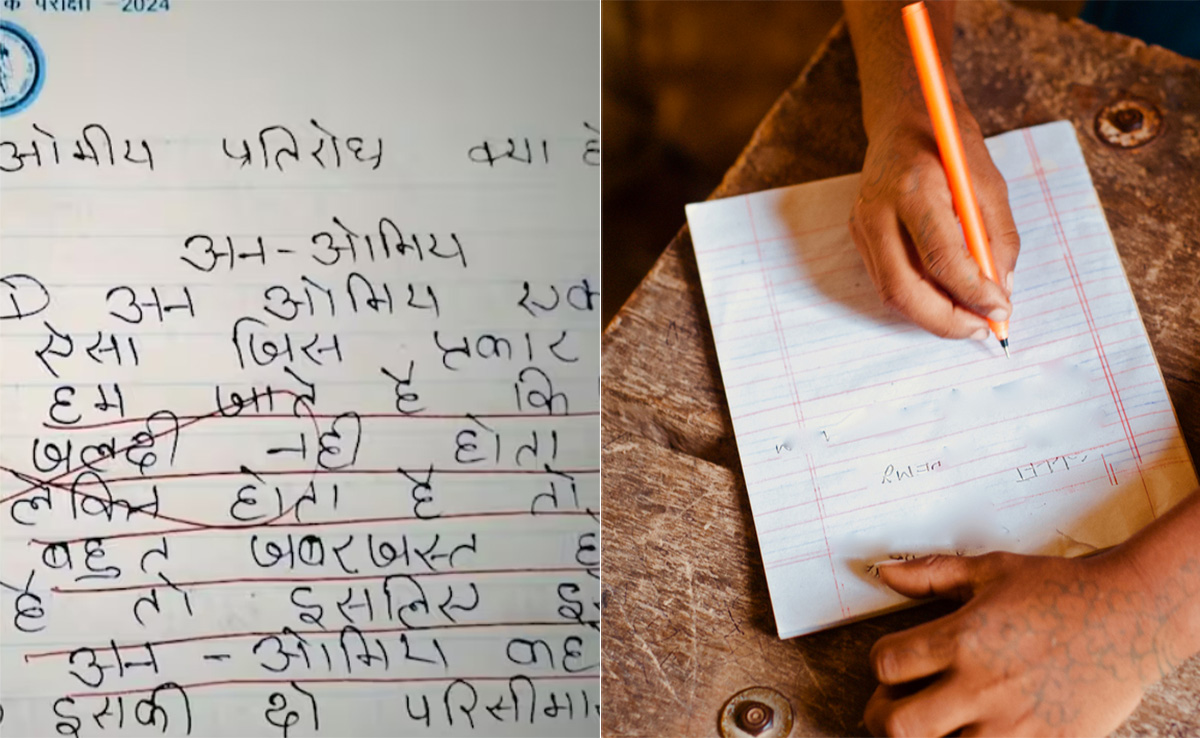 क परीक्षा -2024
ओमीय प्रतिरोध क्या है
अन-ओमिय
अन ओमिय एक
ऐसा जिस प्रकार
हम जाते है कि
जलदी नही होता
लेकिन होता है तो
बहुत जबरजस्त
है तो इसलिए
अन - ओमिय कह
इसकी दो परिसीमा